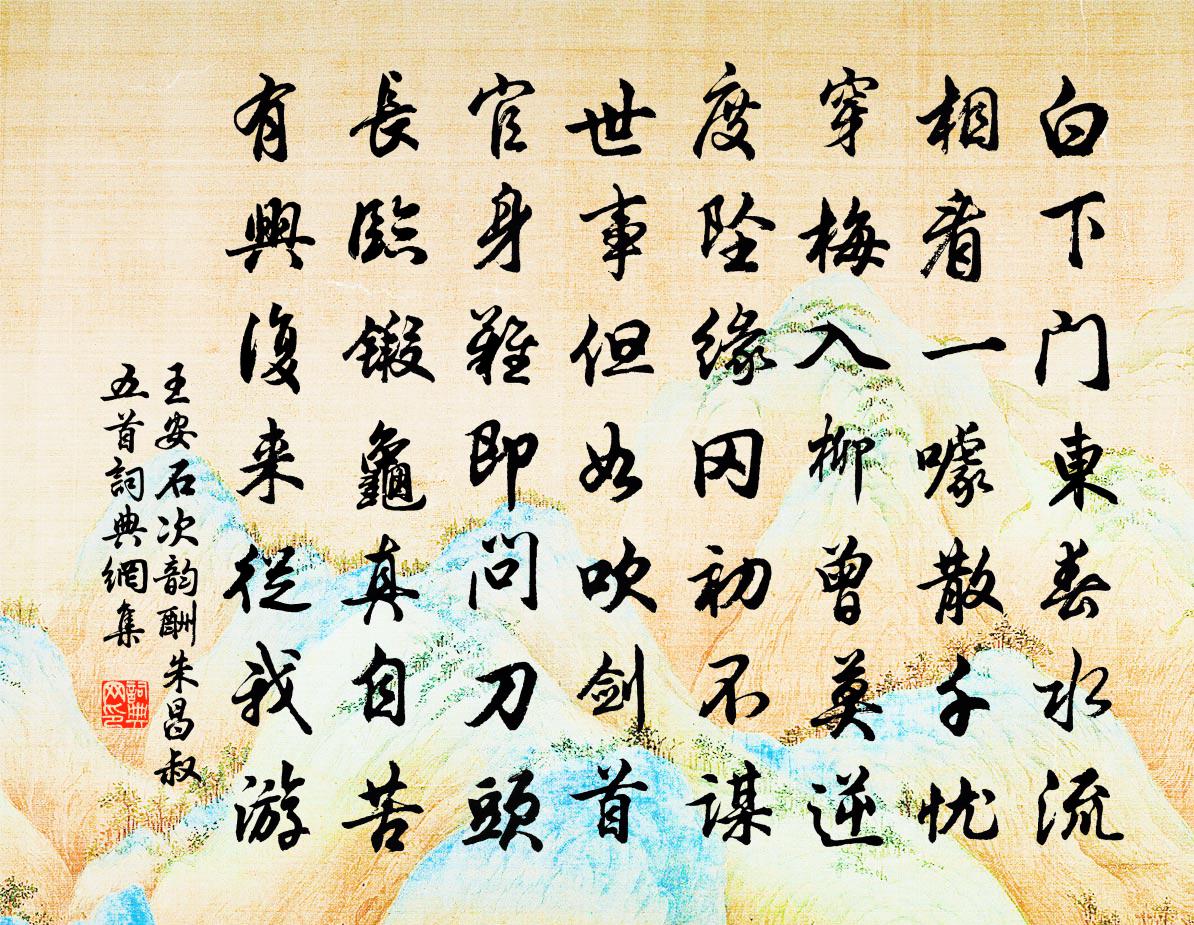 白下门東春水流
相看一噱散千忧
穿梅入柳曾莫逆
度陉缘冈初不谋
世事但如吹剑首
官身難即问刀頭
長臨鍛龜真自苦
有興復来從我游
王安石次韵酬朱昌叔
五首詞典網集
詞典网印